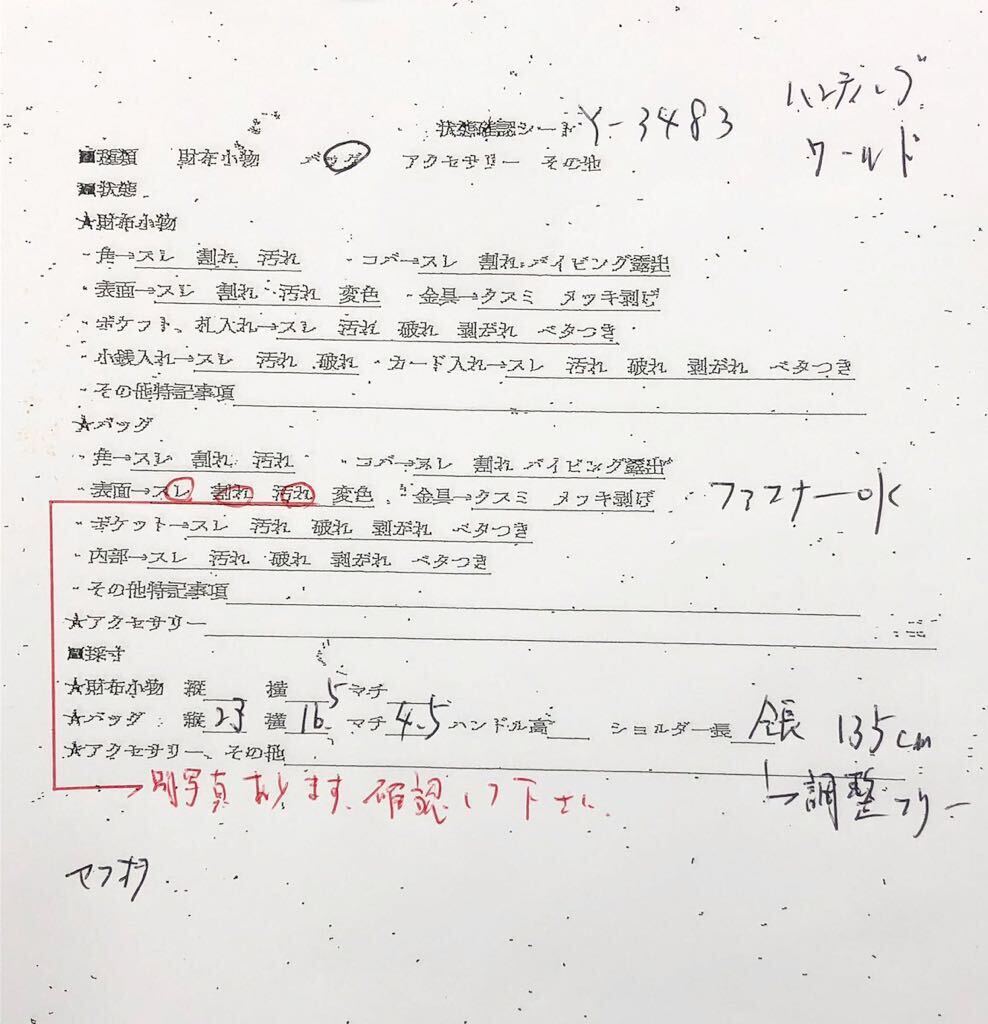 ハンティング
状態確認シート Y-3483
ワールド
■種類 財布小物 バッグ アクセサリー その他
■状態
★財布小物
・角→スレ 割れ 汚れ ・コバ→スレ 割れ パイピング露出
・表面→スレ 割れ 汚れ 変色 ・金具→クスミ メッキ剥げ
・ポケット、札入れ→スレ 汚れ 破れ 剥がれ ベタつき
・小銭入れ→スレ 汚れ 破れ ・カード入れ→スレ 汚れ 破れ 剥がれ ベタつき
・その他特記事項
★バッグ
・角→スレ 割れ 汚れ ・コバ→スレ 割れ パイピング露出
・表面→スレ 割れ 汚れ 変色 ・金具→クスミ メッキ剥げ ファスナーOK
・ポケット→スレ 汚れ 破れ 剥がれ ベタつき
・内部→スレ 汚れ 破れ 剥がれ ベタつき
・その他特記事項
★アクセサリー
■採寸
★財布小物 縦 横 マチ
★バッグ 縦23 横16.5 マチ4.5 ハンドル高 ショルダー長 全長 135cm
★アクセサリー、その他
別写真あります、確認して下さい 調整フリー